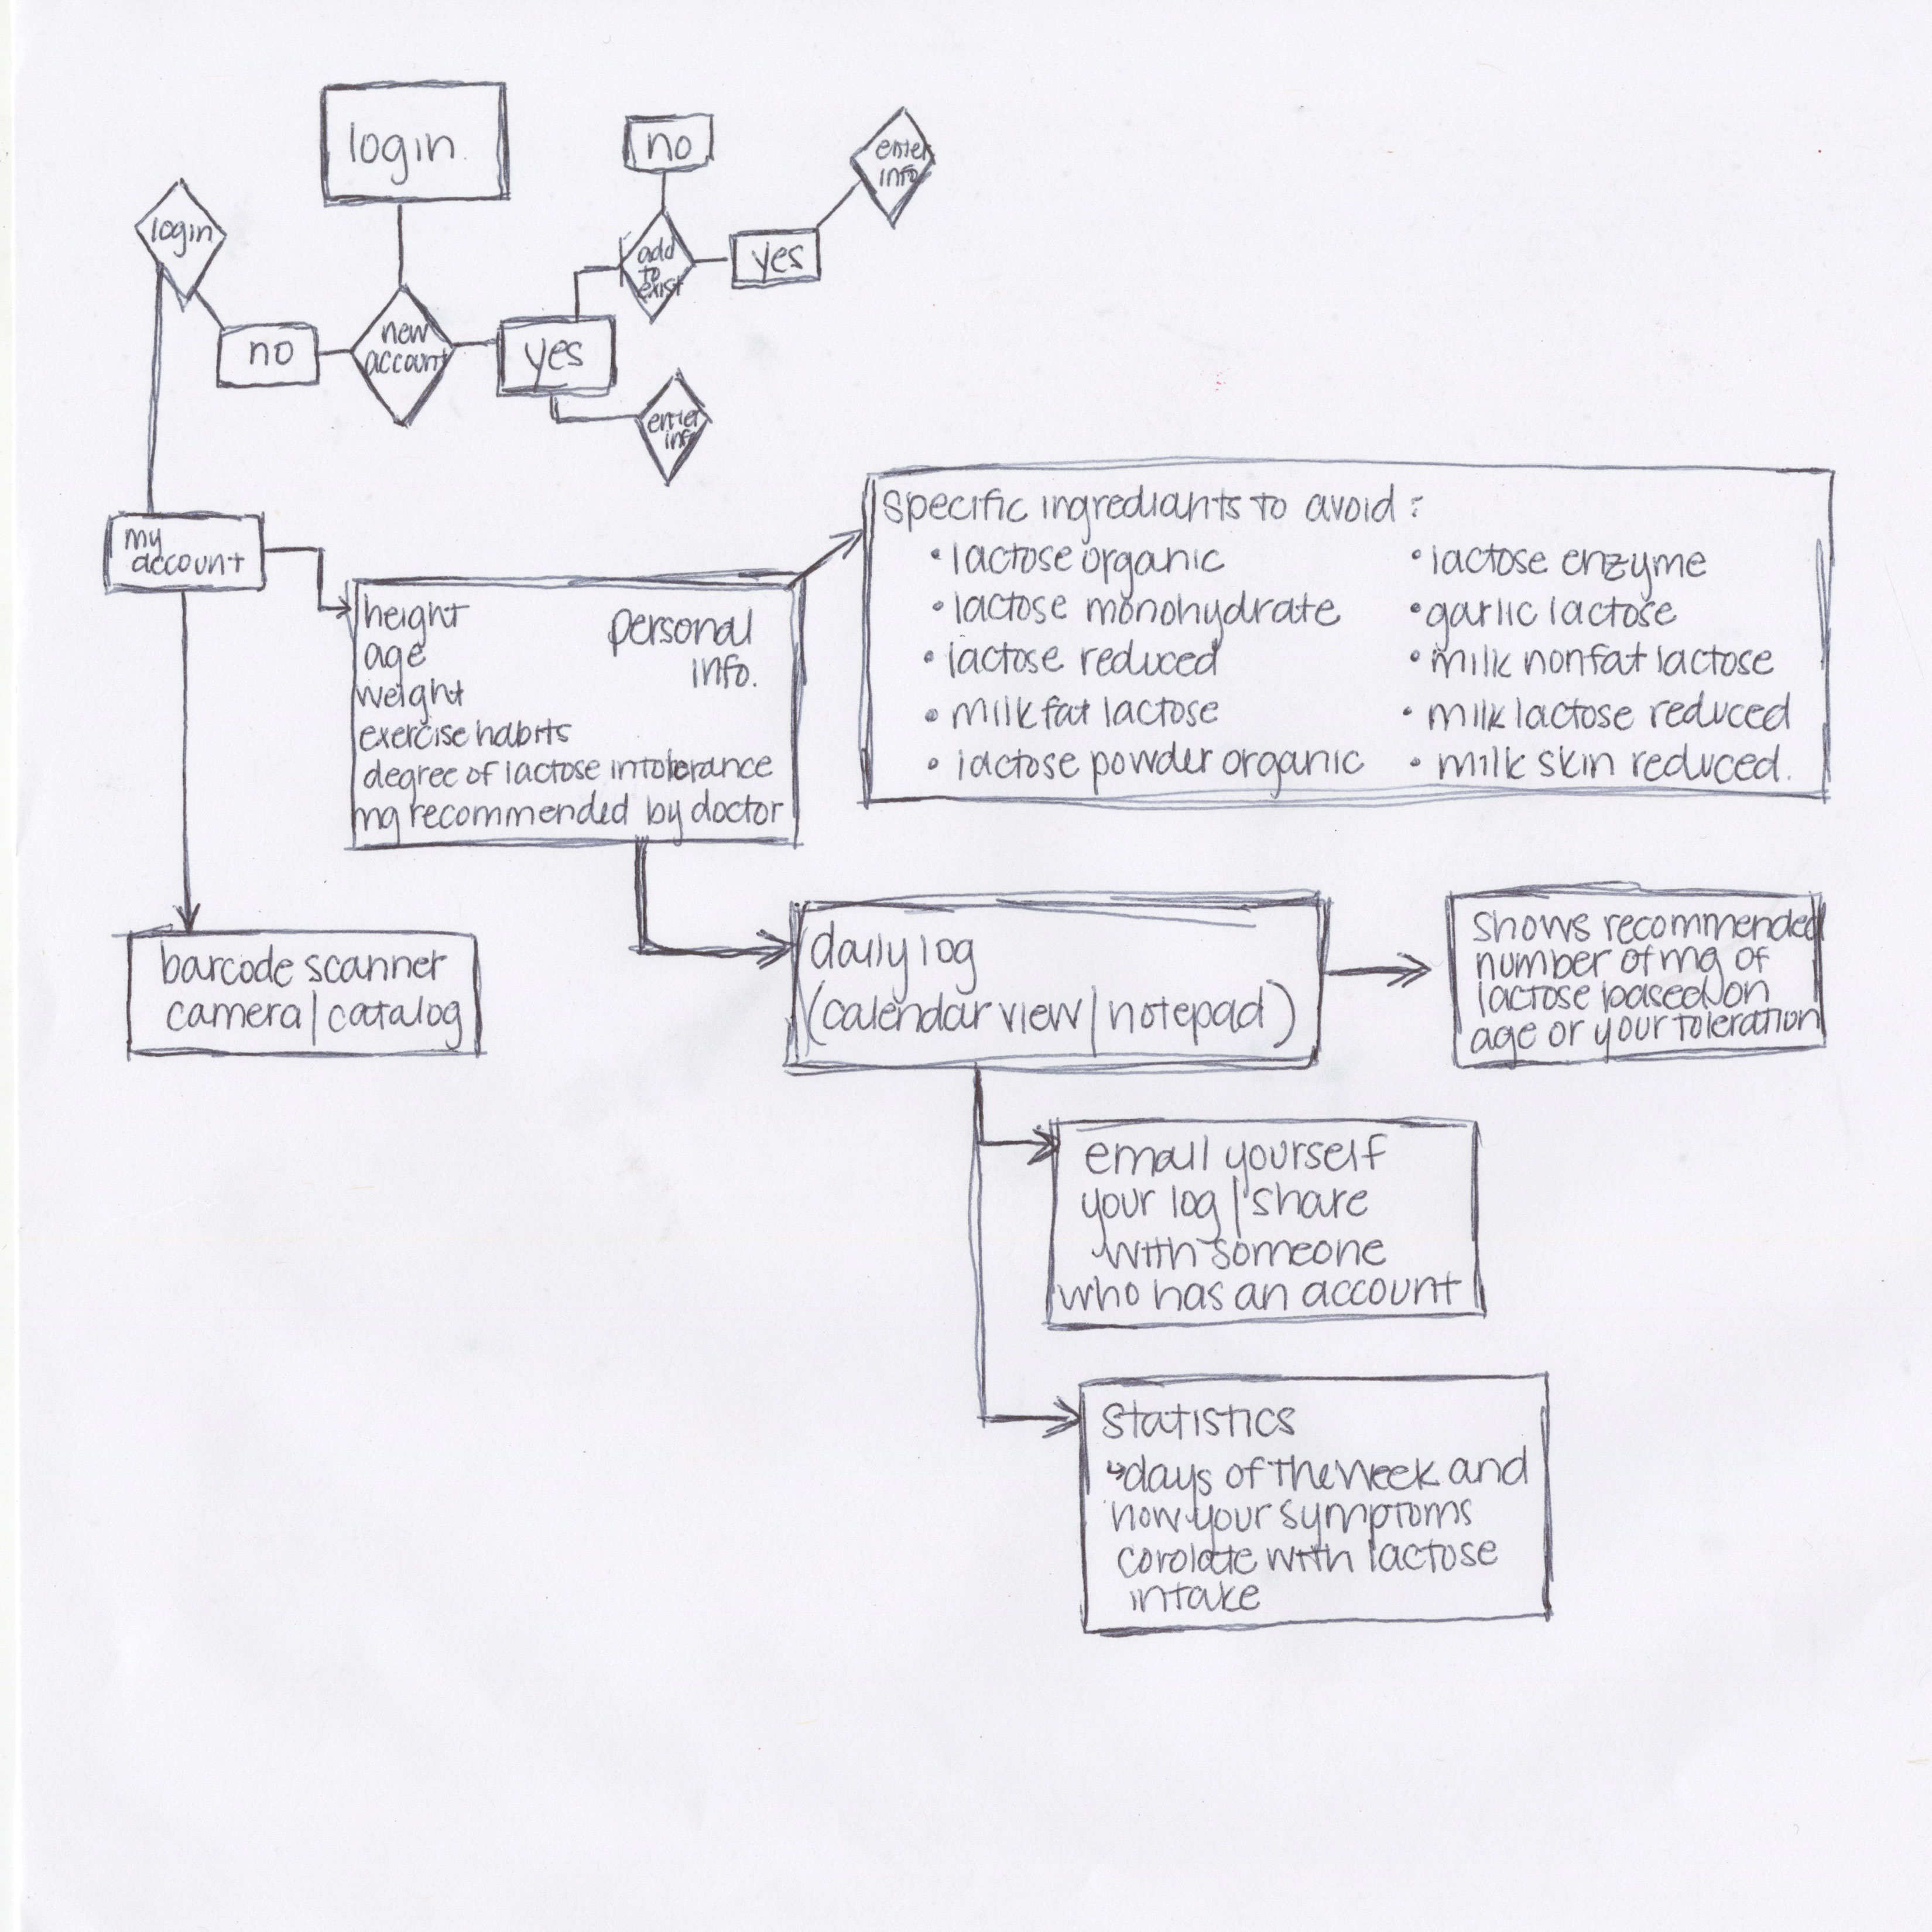 login.
no
enter
info
login
add
to
exist
yes
new
account
no
yes
enter
info
my
account
specific ingrediants to avoid:
• lactose organic
• lactose monohydrate
• lactose reduced
• milk fat lactose
• lactose powder organic
• lactose enzyme
• garlic lactose
• milk nonfat lactose
• milk lactose reduced
• milk skin reduced.
personal
info.
height
age
weight
exercise habits
degree of lactose intolerance
mg recommended by doctor
barcode scanner
camera | catalog
daily log
(calendar view | notepad)
shows recommended
number of mg of
lactose based on
age or your toleration
email yourself
your log | share
with someone
who has an account
statistics
↳ days of the week and
how your symptoms
corolate with lactose
intake